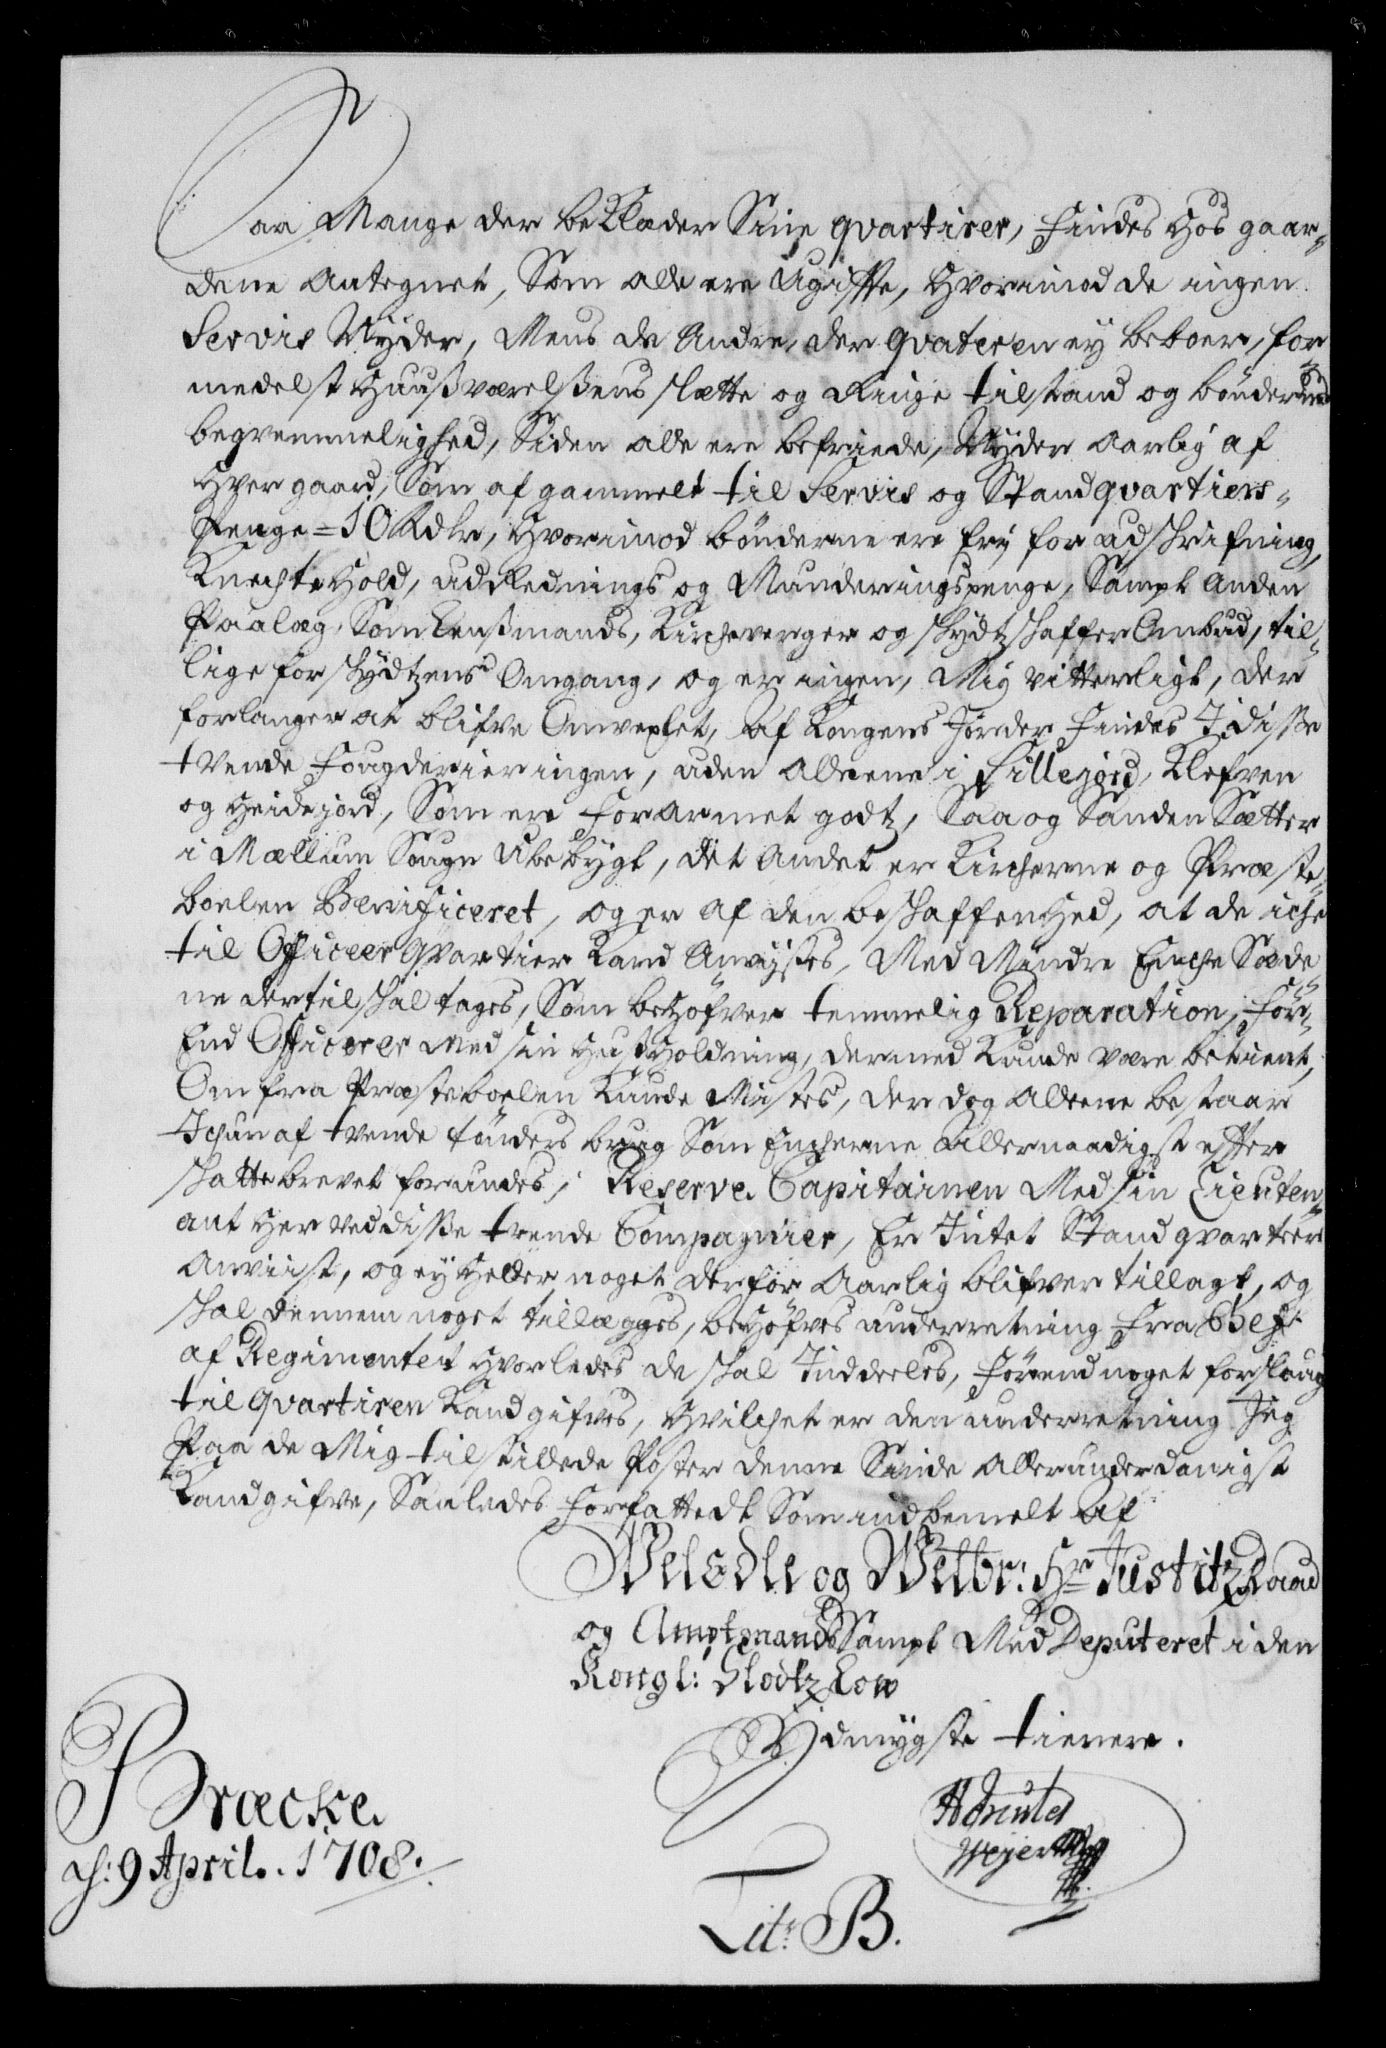 Saa Mange der beKlæder Sine qvartirer, findes Hos gaar-
dene Antegnet, Som alle ere Ugifte, Hvorimod de ingen
Servis Nyder, Mens de Andre, der Qvateren ey beboer, for
medelst Huusværelsens slætte og Ringe tilstand og bönderne
begvemmelighed, Siden alle ere befriede, Nyder Aarlig af
Hver gaard, Som af gammelt til Servis og Standqvartiers-
Penge = 10 Rdlr, Hvorimod bönderne ere fry for udskrifning,
Knechtehold, udRednings og Munderingspenge, Sampt anden
Paalæg, Som Lensmands, Kircheverger og skydtzskaffer Ombud, til-
lige for skydtzens Omgang, og er ingen, Mig vitterligt, der
forlanger at blifve Omvexlet, Af Kongens Jorder findes I disse
tvende Fougderier ingen, uden Alleene i Fillejord, Klefven
og Heidejord, Som ere forarmet godtz, Saa og Sanden Sætter
i Mællum Sougn Ubebygt, det Andet er Kircherne og Præste-
boelen Benificeret, og er af den beskaffenhed, at de iche
til Officeer Qvartier Kand Anvijses, Med Mindre Enche Sæde
ne dertil skal tages, Som behöfver temmelig Reparation, för-
End Officerer Med sin Huusholdning, dermed Kunde være betient,
Om fra Præsteboelen Kunde Mistes, der dog Alleene bestaar
Ichun af tvende tönders brug Som Encherne Allernaadigst efter
skattebrevet forundes, Reserve Capitainen Med sin Lieuten-
ant Her ved disse trende Compagnier, Er Intet Standqvarteer
Anviist, og ey Heller noget derfor Aarlig blifver tillagt, og
skal dennem noget tillægges, behöfves underretning fra Chef
af Regimentet Hvorledes de skal Inddeeles, förend noget forslaug
til Qvartiren Kand gifves, Hvilchet er den underretning Jeg
Paa de Mig tilstillede Poster denne Sinde Allerunderdanigst
Kand gifve, Saaledes forfattedt Som indbemelt Af
Velædle og Welbr: Hr Justitz Raad
og Amptmands Sampt Med Deputeret i den
Kongl: Slodtz Low
Ydmygste tienere.
Bræcke
d: 9 April. 1708.
Lit: B.